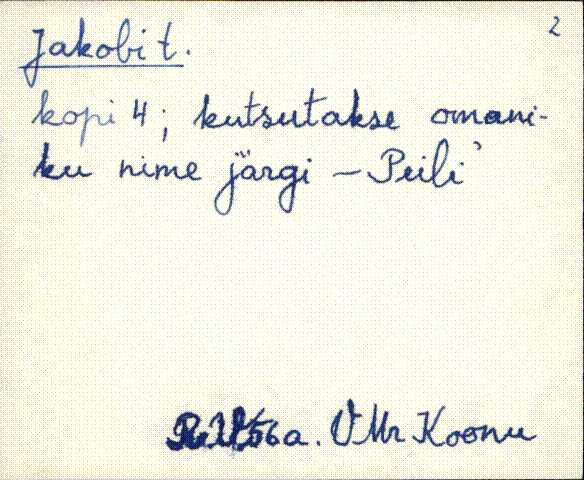 2
Jakobi t.
kopi 4; kutsutakse omani-
ku nime järgi – Peili'
a. VMr Koonu